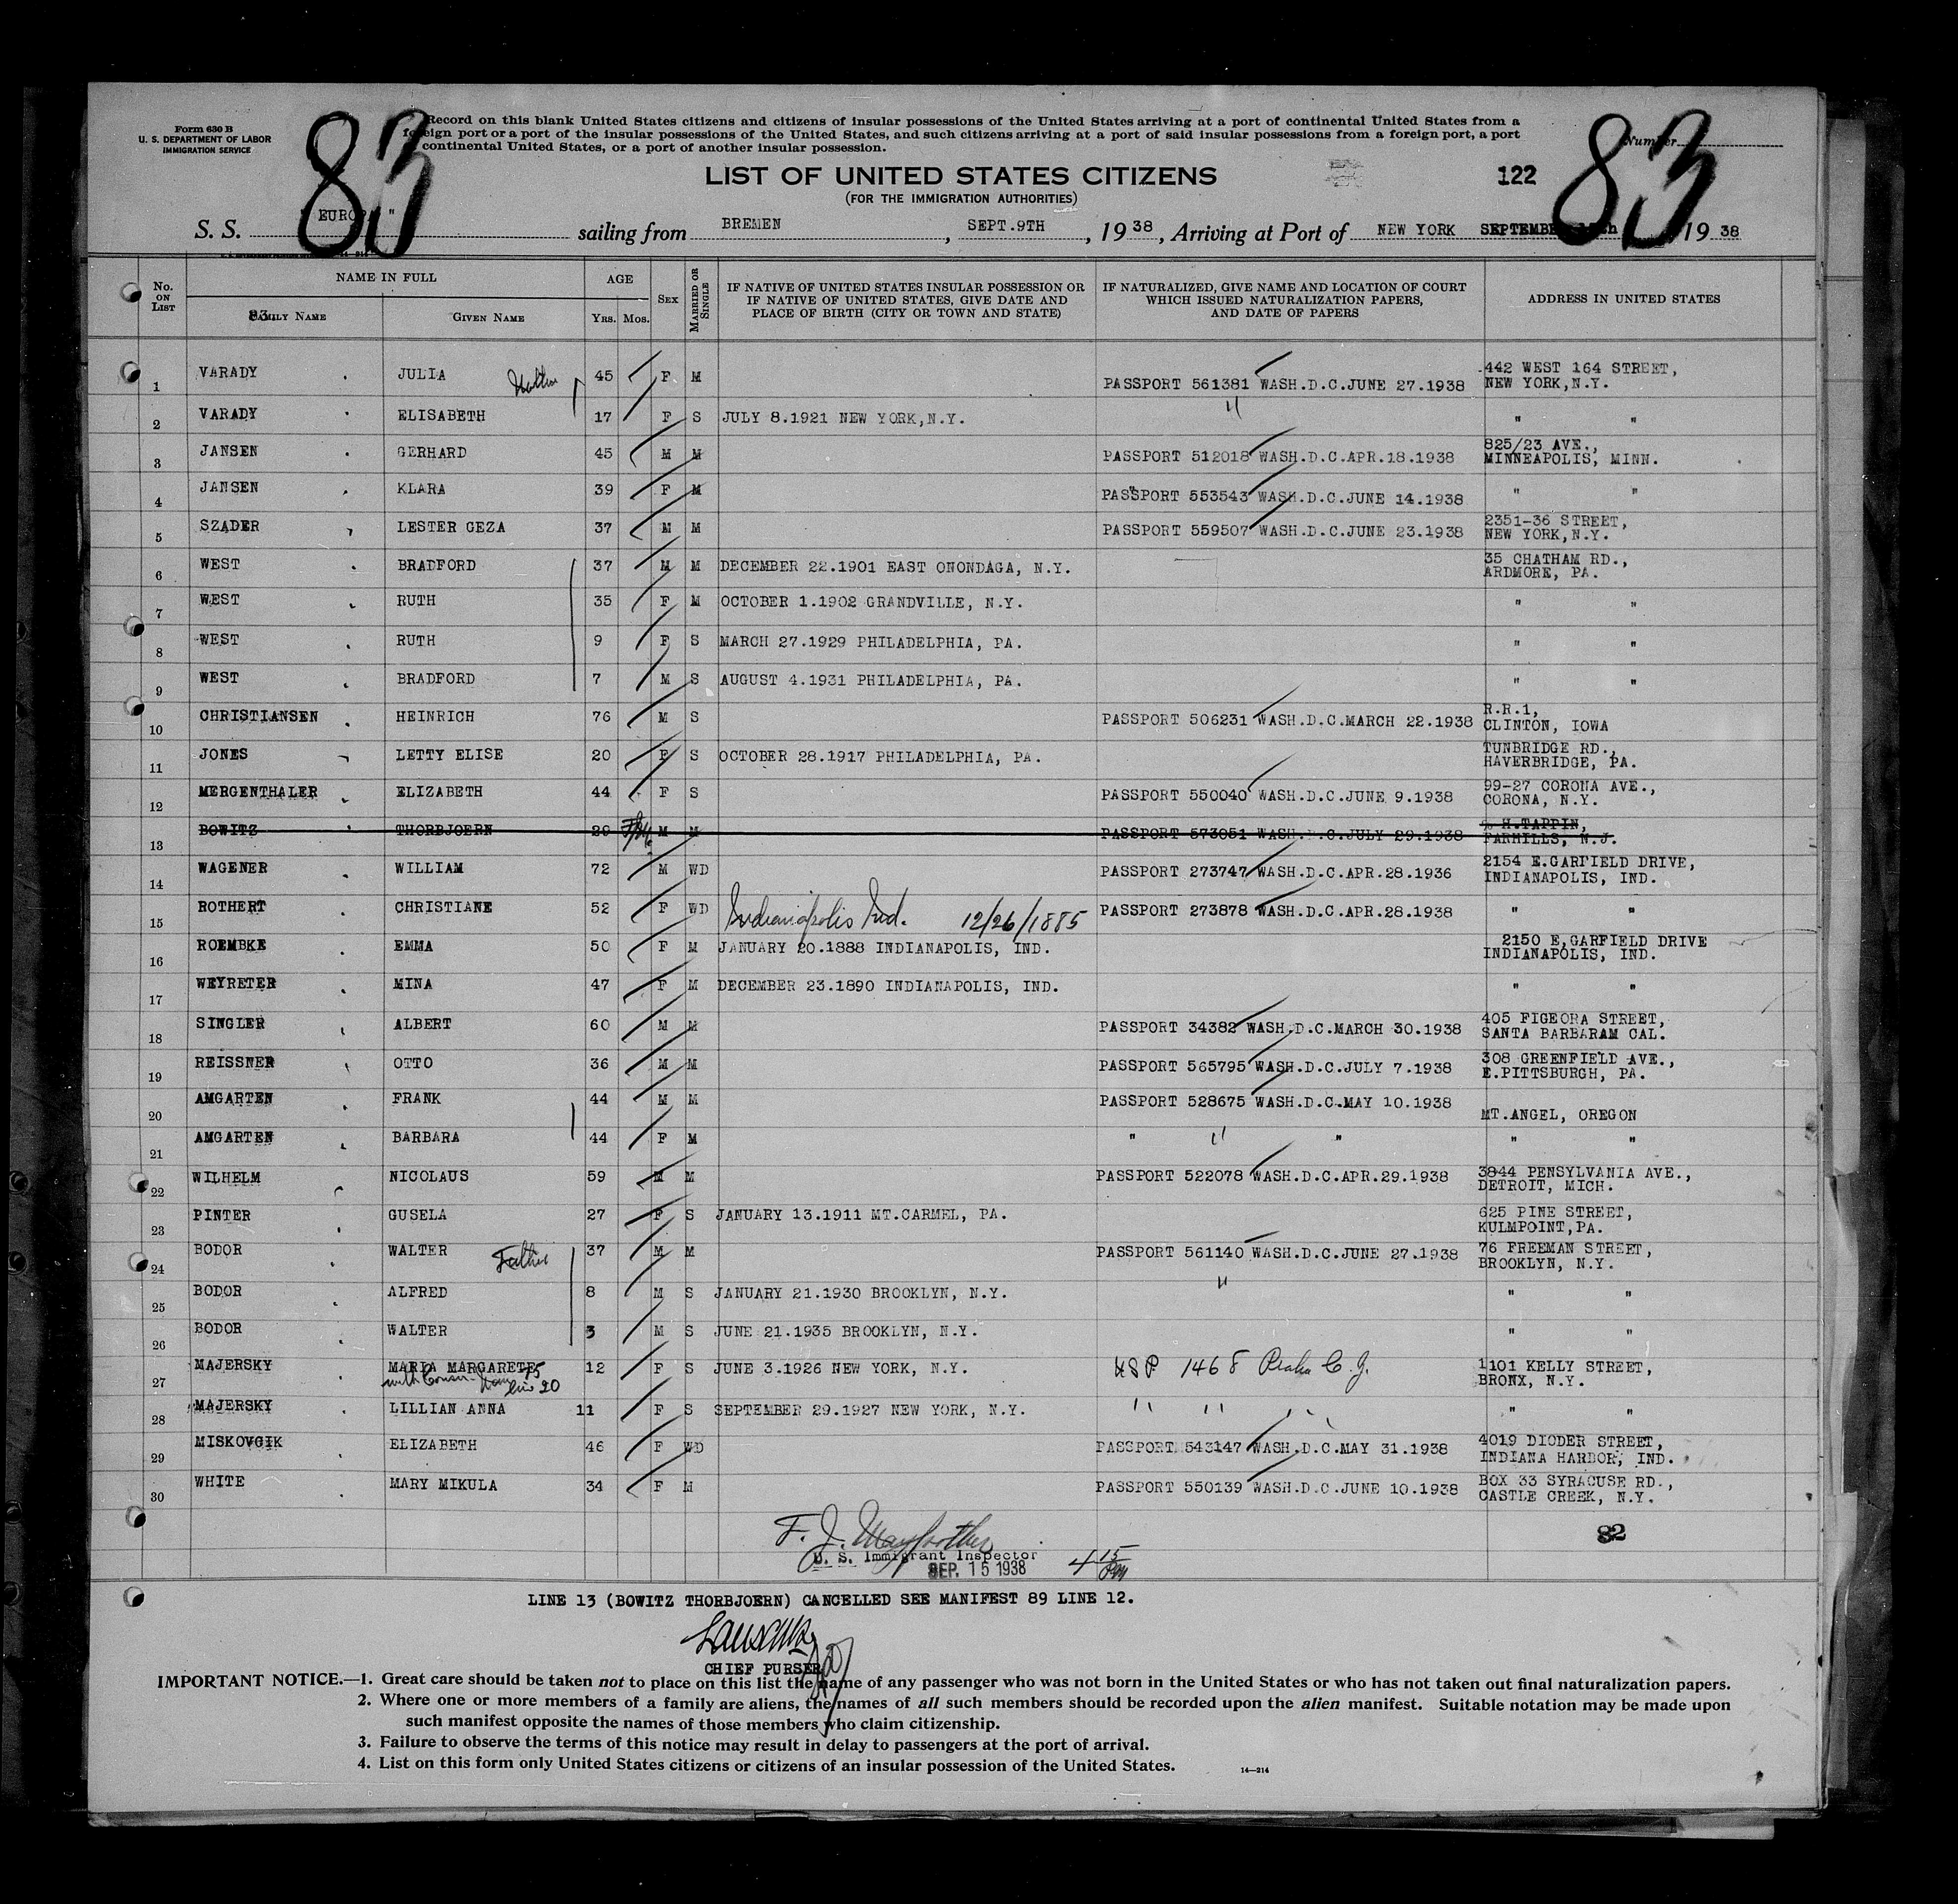 Form 630 B
U. S. DEPARTMENT OF LABOR
IMMIGRATION SERVICE
83
Record on this blank United States citizens and citizens of insular possessions of the United States arriving at a port of continental United States from a
foreign port or a port of the insular possessions of the United States, and such citizens arriving at a port of said insular possessions from a foreign port, a port
continental United States, or a port of another insular possession.
Number
83
LIST OF UNITED STATES CITIZENS
(FOR THE IMMIGRATION AUTHORITIES)
122
S. S. " EUROPA " sailing from BREMEN , SEPT.9TH , 19 38 , Arriving at Port of NEW YORK SEPTEMBER 19 38
No. ON LIST
NAME IN FULL
83
FAMILY NAME
GIVEN NAME
AGE
YRS. MOS.
SEX
MARRIED OR SINGLE
IF NATIVE OF UNITED STATES INSULAR POSSESSION OR
IF NATIVE OF UNITED STATES, GIVE DATE AND
PLACE OF BIRTH (CITY OR TOWN AND STATE)
IF NATURALIZED, GIVE NAME AND LOCATION OF COURT
WHICH ISSUED NATURALIZATION PAPERS,
AND DATE OF PAPERS
ADDRESS IN UNITED STATES
1 VARADY JULIA Mother 45 F M PASSPORT 561381 WASH.D.C.JUNE 27.1938 442 WEST 164 STREET, NEW YORK,N.Y.
2 VARADY ELISABETH 17 F S JULY 8.1921 NEW YORK,N.Y. " " "
3 JANSEN GERHARD 45 M M PASSPORT 512018 WASH.D.C.APR.18.1938 825/23 AVE., MINNEAPOLIS, MINN.
4 JANSEN KLARA 39 F M PASSPORT 553543 WASH.D.C.JUNE 14.1938 " "
5 SZADER LESTER GEZA 37 M M PASSPORT 559507 WASH.D.C.JUNE 23.1938 2351-36 STREET, NEW YORK,N.Y.
6 WEST BRADFORD 37 M M DECEMBER 22.1901 EAST ONONDAGA, N.Y. 35 CHATHAM RD., ARDMORE, PA.
7 WEST RUTH 35 F M OCTOBER 1.1902 GRANDVILLE, N.Y. " "
8 WEST RUTH 9 F S MARCH 27.1929 PHILADELPHIA, PA. " "
9 WEST BRADFORD 7 M S AUGUST 4.1931 PHILADELPHIA, PA. " "
10 CHRISTIANSEN HEINRICH 76 M S PASSPORT 506231 WASH.D.C.MARCH 22.1938 R.R.1, CLINTON, IOWA
11 JONES LETTY ELISE 20 F S OCTOBER 28.1917 PHILADELPHIA, PA. TUNBRIDGE RD., HAVERBRIDGE, PA.
12 MERGENTHALER ELIZABETH 44 F S PASSPORT 550040 WASH.D.C.JUNE 9.1938 99-27 CORONA AVE., CORONA, N.Y.
13 BOWITZ THORBJOERN 29 M M PASSPORT 573051 WASH.D.C.JULY 29.1938 % H.TAPPIN, FARHILLS, N.J.
14 WAGENER WILLIAM 72 M WD PASSPORT 273747 WASH.D.C.APR.28.1936 2154 E.GARFIELD DRIVE, INDIANAPOLIS, IND.
15 ROTHERT CHRISTIANE 52 F WD Indianapolis Ind. 12/26/1885 PASSPORT 273878 WASH.D.C.APR.28.1938 " "
16 ROEMBKE EMMA 50 F M JANUARY 20.1888 INDIANAPOLIS, IND. 2150 E,GARFIELD DRIVE INDIANAPOLIS, IND.
17 WEYRETER MINA 47 F M DECEMBER 23.1890 INDIANAPOLIS, IND. " "
18 SINGLER ALBERT 60 M M PASSPORT 34382 WASH.D.C.MARCH 30.1938 405 FIGEORA STREET, SANTA BARBARAM CAL.
19 REISSNER OTTO 36 M M PASSPORT 565795 WASH.D.C.JULY 7.1938 308 GREENFIELD AVE., E.PITTSBURGH, PA.
20 AMGARTEN FRANK 44 M M PASSPORT 528675 WASH.D.C.MAY 10.1938 MT.ANGEL, OREGON
21 AMGARTEN BARBARA 44 F M " " " " "
22 WILHELM NICOLAUS 59 M M PASSPORT 522078 WASH.D.C.APR.29.1938 3844 PENSYLVANIA AVE., DETROIT, MICH.
23 PINTER GUSELA 27 F S JANUARY 13.1911 MT.CARMEL, PA. 625 PINE STREET, KULMPOINT,PA.
24 BODOR WALTER Father 37 M M PASSPORT 561140 WASH.D.C.JUNE 27.1938 76 FREEMAN STREET, BROOKLYN, N.Y.
25 BODOR ALFRED 8 M S JANUARY 21.1930 BROOKLYN, N.Y. " " "
26 BODOR WALTER 3 M S JUNE 21.1935 BROOKLYN, N.Y. " "
27 MAJERSKY MARIA MARGARETE 12 F S JUNE 3.1926 NEW YORK, N.Y. USP 1468 Praha C. J. 1101 KELLY STREET, BRONX, N.Y.
with line 20
28 MAJERSKY LILLIAN ANNA 11 F S SEPTEMBER 29.1927 NEW YORK, N.Y. " " " " "
29 MISKOVGIK ELIZABETH 46 F WD PASSPORT 543147 WASH.D.C.MAY 31.1938 4019 DIODER STREET, INDIANA HARBOR, IND.
30 WHITE MARY MIKULA 34 F M PASSPORT 550139 WASH.D.C.JUNE 10.1938 BOX 33 SYRACUSE RD., CASTLE CREEK, N.Y.
82
F. J.
U. S. Immigrant Inspector
SEP. 15 1938 4 15 PM
LINE 13 (BOWITZ THORBJOERN) CANCELLED SEE MANIFEST 89 LINE 12.
CHIEF PURSER
IMPORTANT NOTICE.—1. Great care should be taken not to place on this list the name of any passenger who was not born in the United States or who has not taken out final naturalization papers.
2. Where one or more members of a family are aliens, the names of all such members should be recorded upon the alien manifest. Suitable notation may be made upon
such manifest opposite the names of those members who claim citizenship.
3. Failure to observe the terms of this notice may result in delay to passengers at the port of arrival.
4. List on this form only United States citizens or citizens of an insular possession of the United States.
14—214